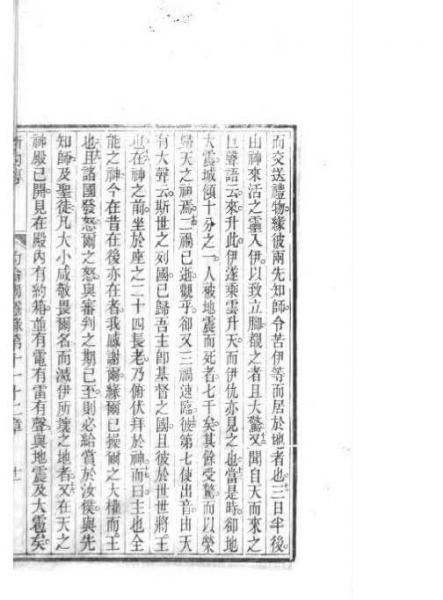 而交送禮物緣彼兩先知師令苦伊等而居於地者也三日半後
由神來活之靈入伊以致立腳覩之者且大驚又聞自天而來之
巨聲語云來升此伊遂乘雲升天而伊仇亦見之也當是時卻地
大震城傾十分之一人被地震而死者七千矣其餘受驚而以榮
歸天之神焉二禍已逝觀乎卻又三禍速臨彼第七使出音由天
有大聲云斯世之列國已歸吾主即基督之國且彼於世世將王
也在神之前坐於座之二十四長老乃俯伏拜於神而曰主也全
能之神今在昔在後亦在者我感謝爾緣爾已操爾之大權而王
也且諸國發怒爾之怒與審判之期已至則必給賞於汝僕與先
知師及聖徒凡大小咸敬畏爾名而滅伊所壞之地者又在天之
神殿已開見在殿內有約箱並有電有雷有聲與地震及大雹矣
第十一十二章